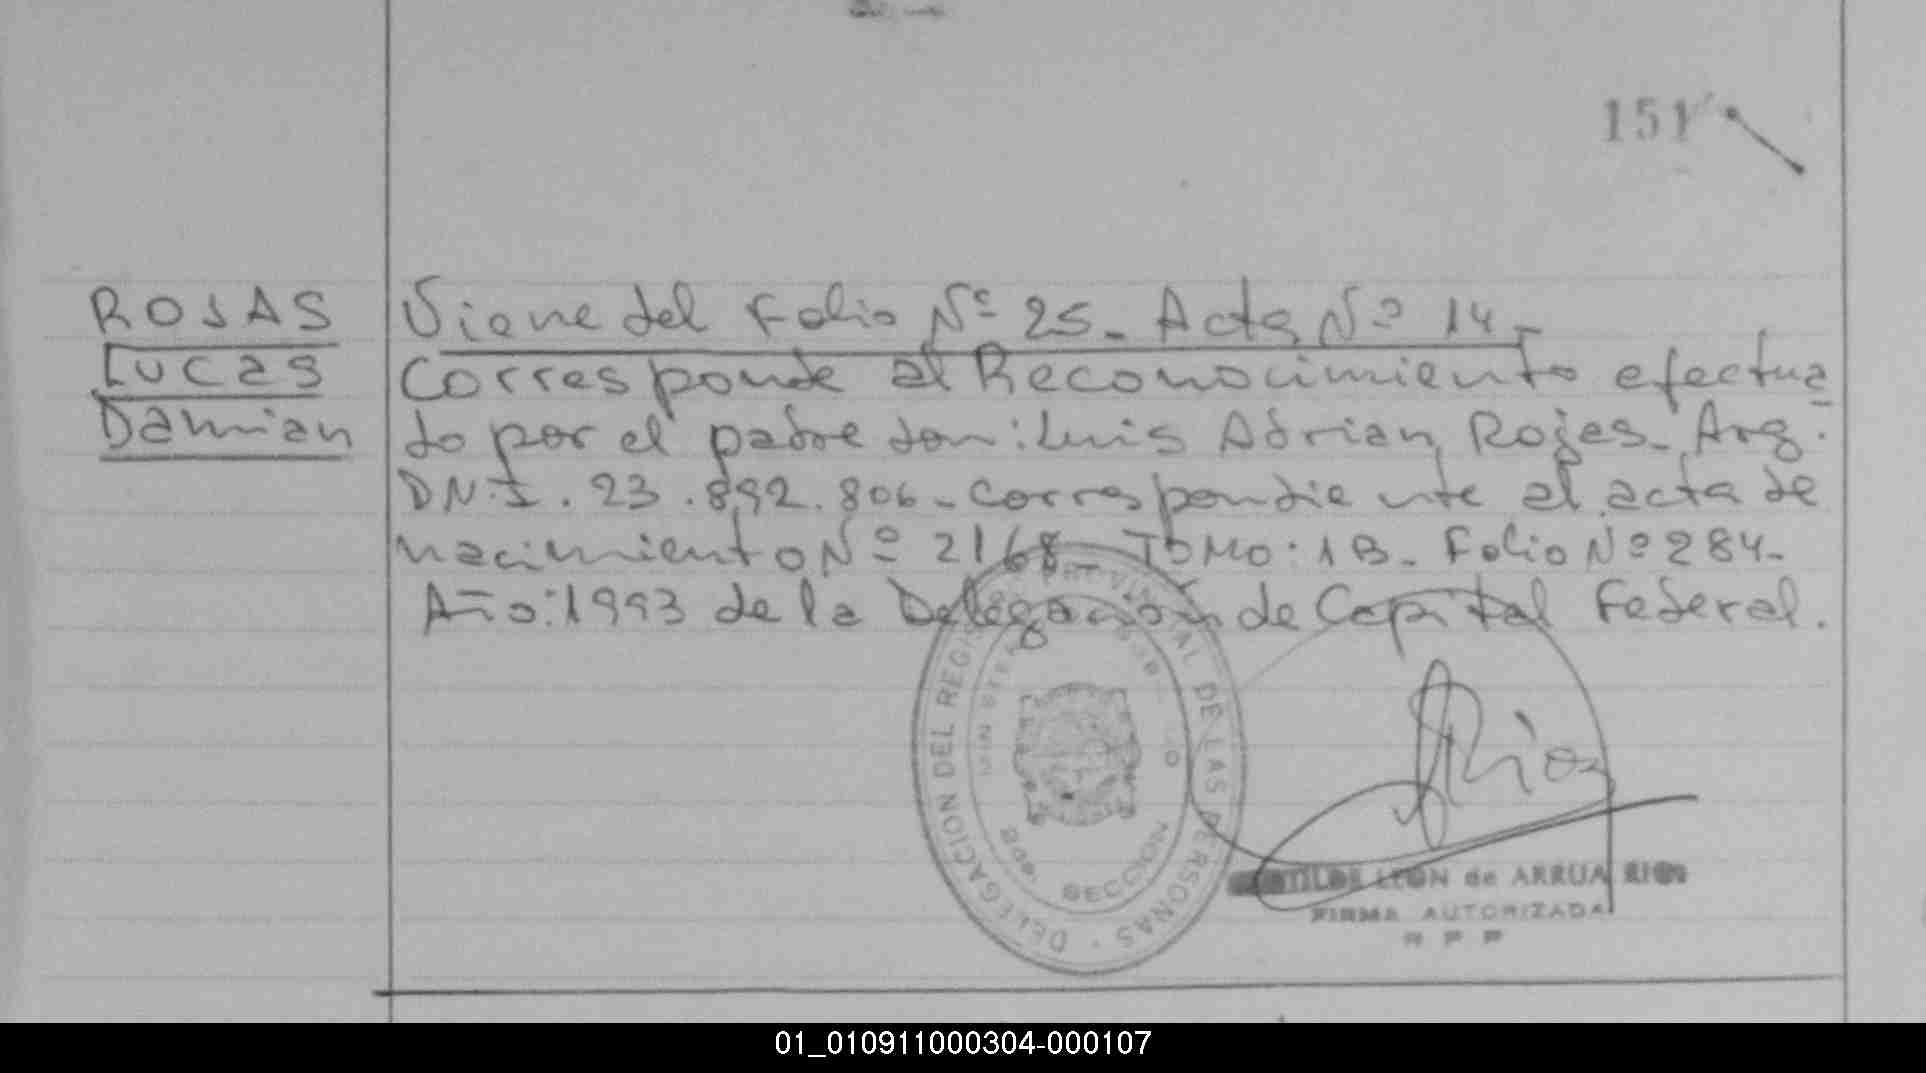 151
ROJAS
Lucas
Damian
Viene del Folio Nº 25_ Acta Nº 14_
Corresponde al Reconocimiento efectua
do por el padre don: Luis Adrian Rojas_ Arg.
DN.I. 23.892.806_ correspondiente al acta de
nacimiento Nº 2168_ TOMO: 1B_ Folio Nº 284_
Año: 1993 de la Delegación de Capital Federal.
DELEGACION DEL REGISTRO PROVINCIAL DE LAS PERSONAS
SECCION
Rios
LEON de ARRUA RIOS
FIRMA AUTORIZADA
R P P
01_010911000304-000107